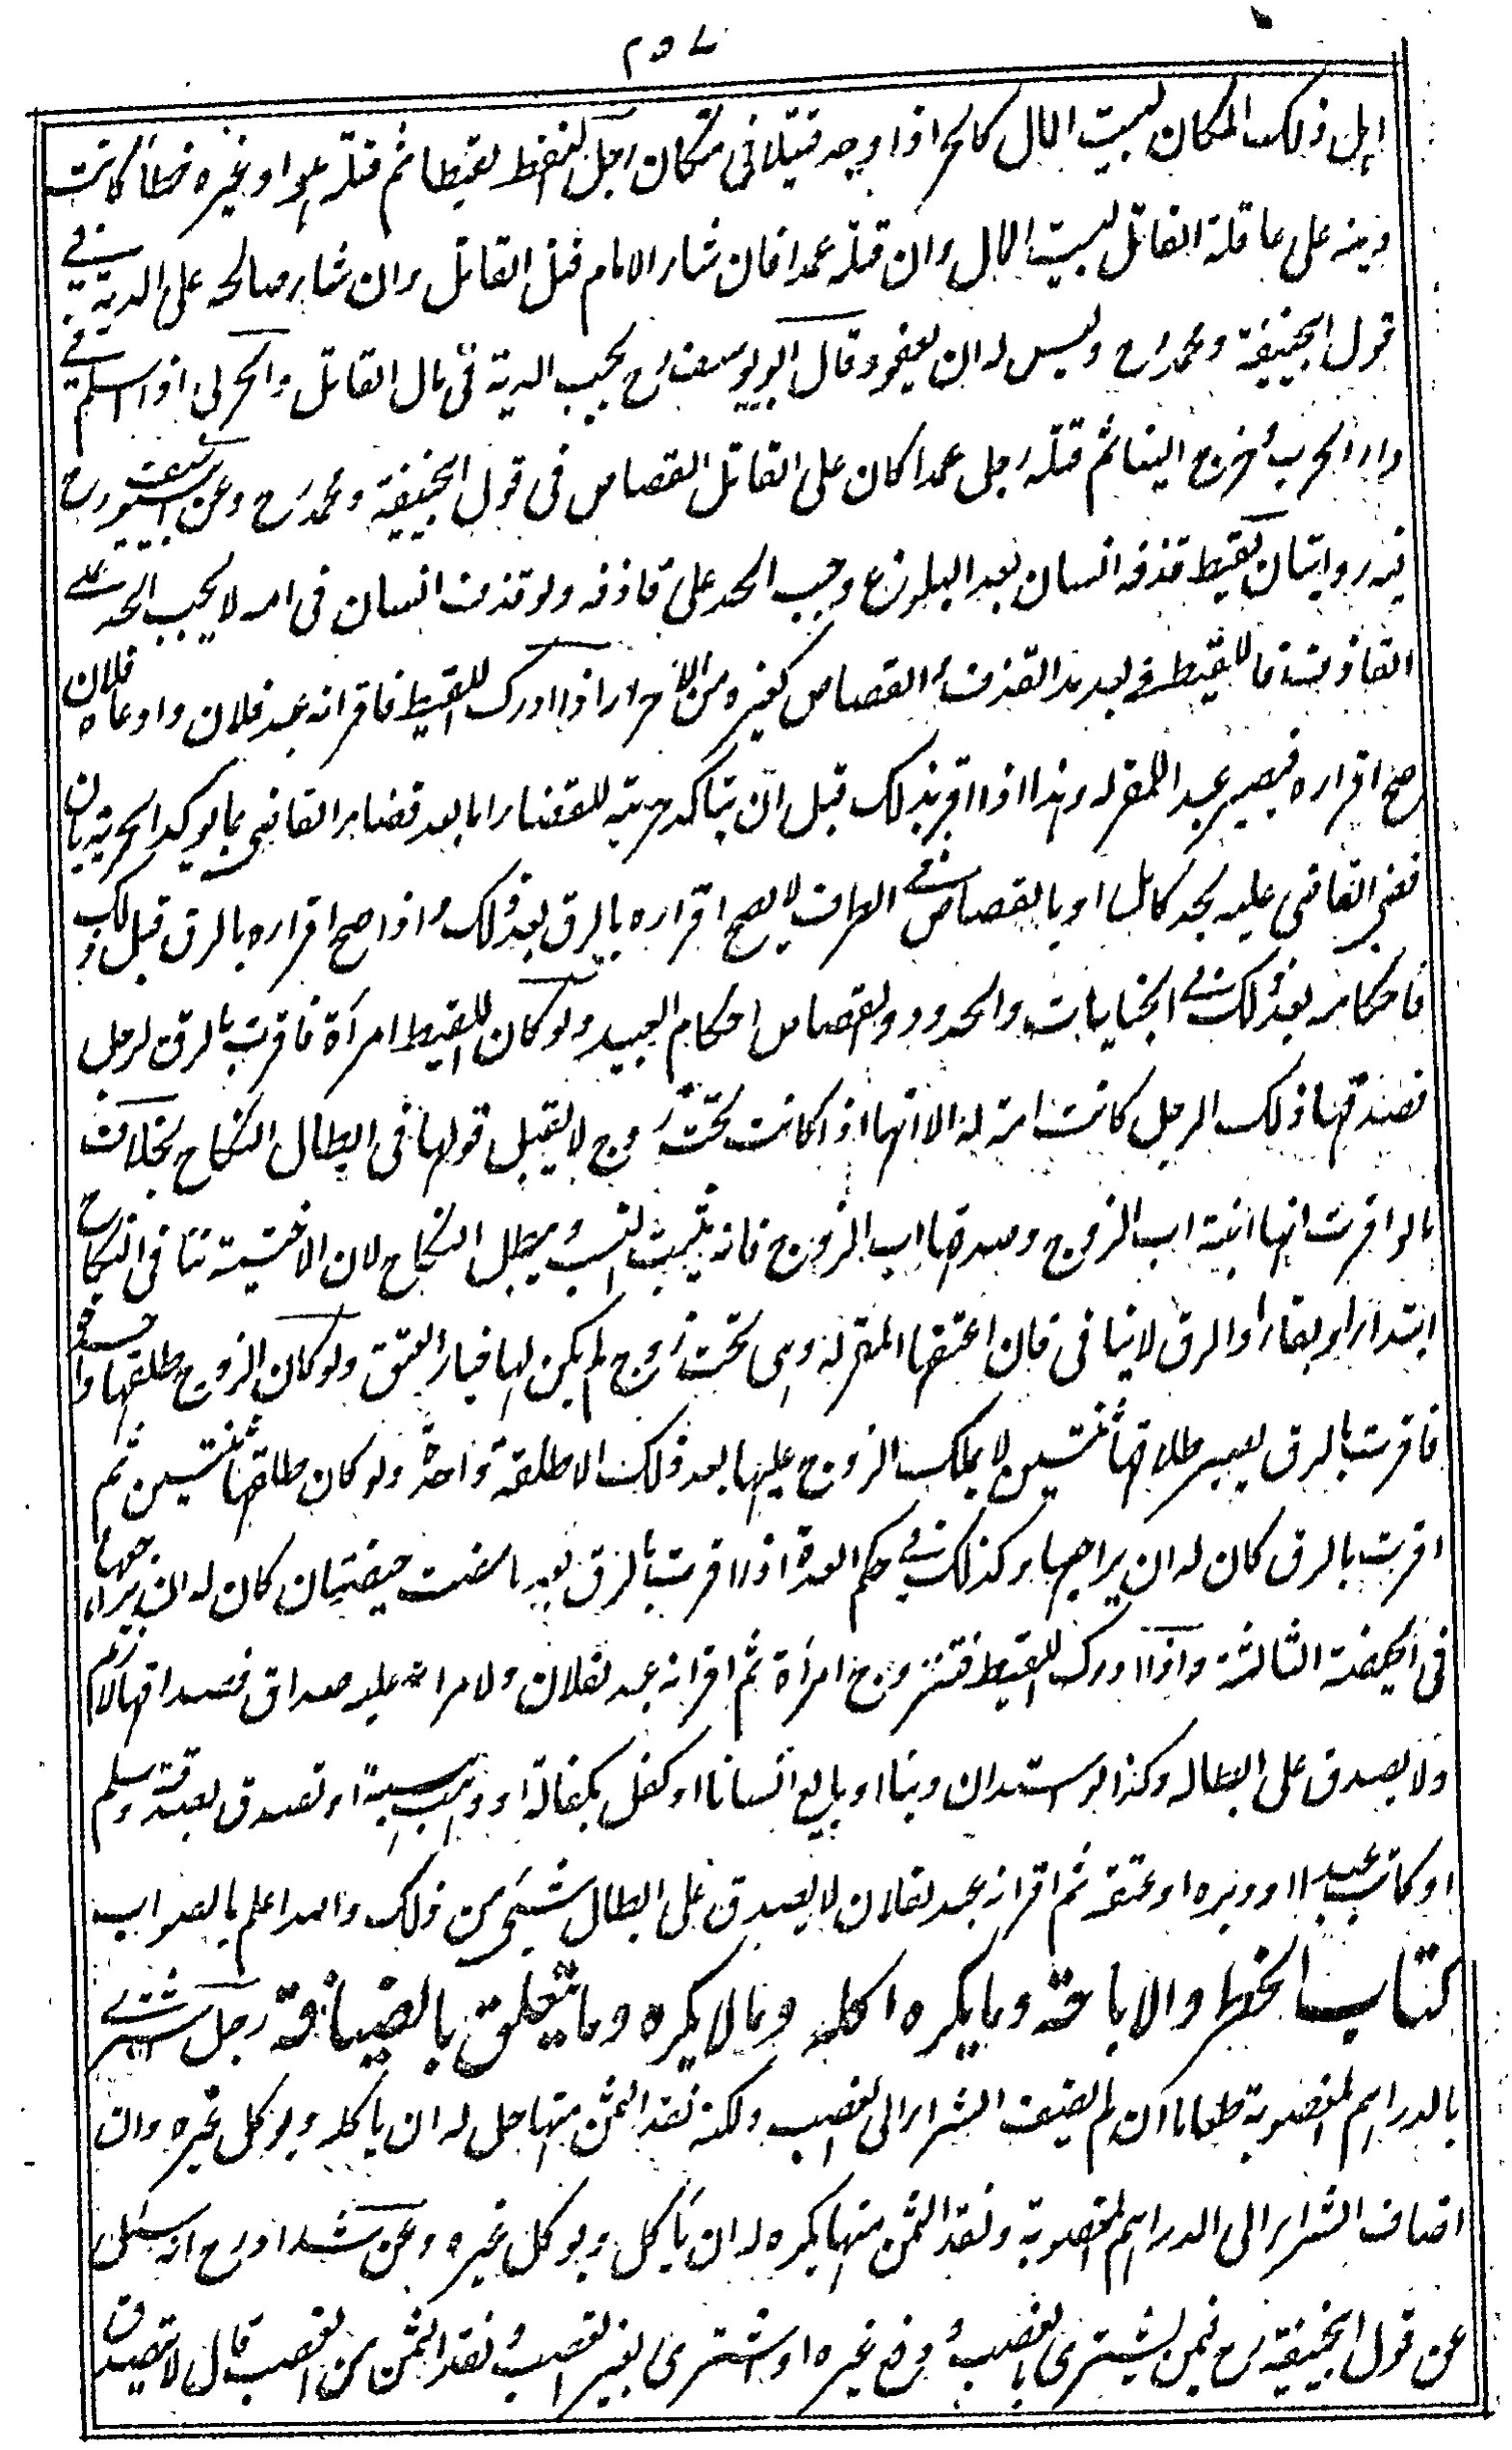 ٢٥٧
اهل ذلك المكان لبيت المال كالحر اذا وجد قتيلا في مكان رجل التقط لقيطا ثم قتله هو او غيره خطأ كانت
ديته على عاقلة القاتل لبيت المال وان قتله عمدا فان شاء الامام قتل القاتل وان شاء صالحه على الدية في
قول ابيحنيفة ومحمد رح وليس له ان يعفو وقال ابو يوسف رح يجب الدية في مال القاتل والحربي اذا اسلم في
دار الحرب وخرج الينا ثم قتله رجل عمدا كان على القاتل القصاص في قول ابيحنيفة ومحمد رح وعن ابييوسف رح
فيه روايتان لقيط قذفه انسان بعد البلوغ وجب الحد على قاذفه ولو قذف انسان في امه لا يجب الحد على
القاذف فاللقيط في بعد هذا القذف والقصاص كغيره من الاحرار اذا ادرك اللقيط فاقر انه عبد فلان وادعاه فلان
صح اقراره فيصير عبدا للمقر له وهذا اذا اقر بذلك قبل ان يتأكد حريته للقضاء اما بعد قضاء القاضي بما يوكد الحرية بان
قضى القاضي عليه بحد كامل او بالقصاص في الطرف لا يصح اقراره بالرق بعد ذلك واذا صح اقراره بالرق قبل ذلك
فاحكامه بعد ذلك في الجنايات والحدود والقصاص احكام العبيد ولو كان اللقيط امرأة فاقرت بالرق لرجل
فصدقها ذلك الرجل كانت امة له الا انها اذا كانت تحت زوج لا يقبل قولها في ابطال النكاح بخلاف
ما لو اقرت انها ابنة اب الزوج وصدقها اب الزوج فانه يثبت النسب ويبطل النكاح لان الاختية تنافي النكاح
ابتداء وبقاء والرق لا ينافي فان اعتقها المقر له وهي تحت زوج لم يكن لها خيار العتق ولو كان الزوج طلقها واحدة
فاقرت بالرق يصير طلاقها ثنتين لا يملك الزوج عليها بعد ذلك الا طلقة واحدة ولو كان طلقها ثنتين ثم
اقرت بالرق كان له ان يراجعها وكذلك في حكم العدة اذا اقرت بالرق بعد ما مضت حيضتان كان له ان يراجعها
في الحيضة الثالثة واذا ادرك اللقيط فتزوج امرأة ثم اقر انه عبد لفلان ولامرأته عليه صداق فصداقها لازم
ولا يصدق على ابطاله وكذا لو استدان دينا او بايع انسانا او كفل بكفالة او وهب هبة او تصدق بصدقة وسلم
او كاتب عبدا او دبره او عتقه ثم اقر انه عبد لفلان لا يصدق على ابطال شيئ من ذلك والله اعلم بالصواب
كتاب الحظر والاباحة وما يكره اكله وما لا يكره وما يتعلق بالضيافة رجل اشترى
بالدراهم المغصوبة طعاما ان لم يضف الشراء الى الغصب ولكنه نقد الثمن منها حل له ان ياكله ويوكل غيره وان
اضاف الشراء الى الدراهم المغصوبة ونقد الثمن منها يكره له ان ياكل ويوكل غيره وعن شداد رح انه سئل
عن قول ابيحنيفة رح فيمن يشترى بالغصب ودفع غيره او اشترى بغير الغصب ونقد الثمن من الغصب قال لا يتصدق